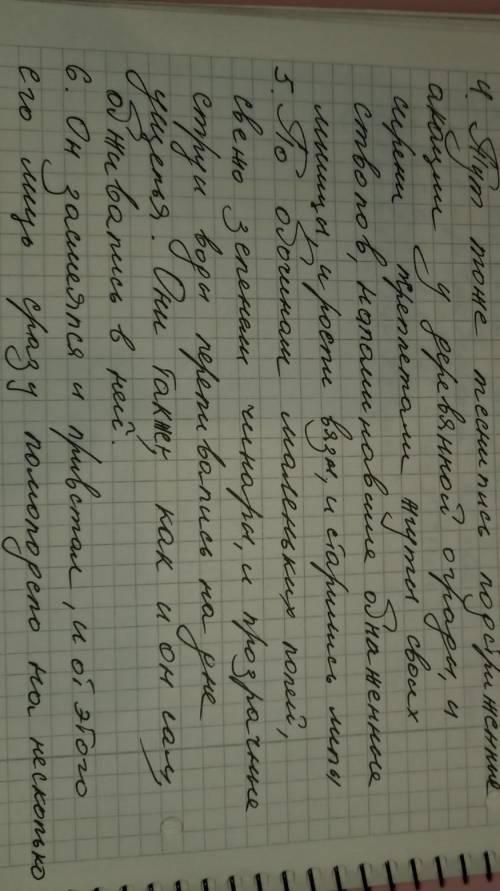 4. Тут тоже теснились подстриженные
акации у деревянной ограды, и
сирени трепетали жгуты своих
стволов, напоминавшие обнаженные
мышцы, и росли вязы, и старились липы
5. По обочинам маленьких полей,
свежо зеленели чинары, и прозрачные
струи воды переливались на дне
ущелья. Они также, как и он сам,
обживались в ней.
6. Он засмеялся и привстал, и от этого
его лицо сразу помолодело на несколько